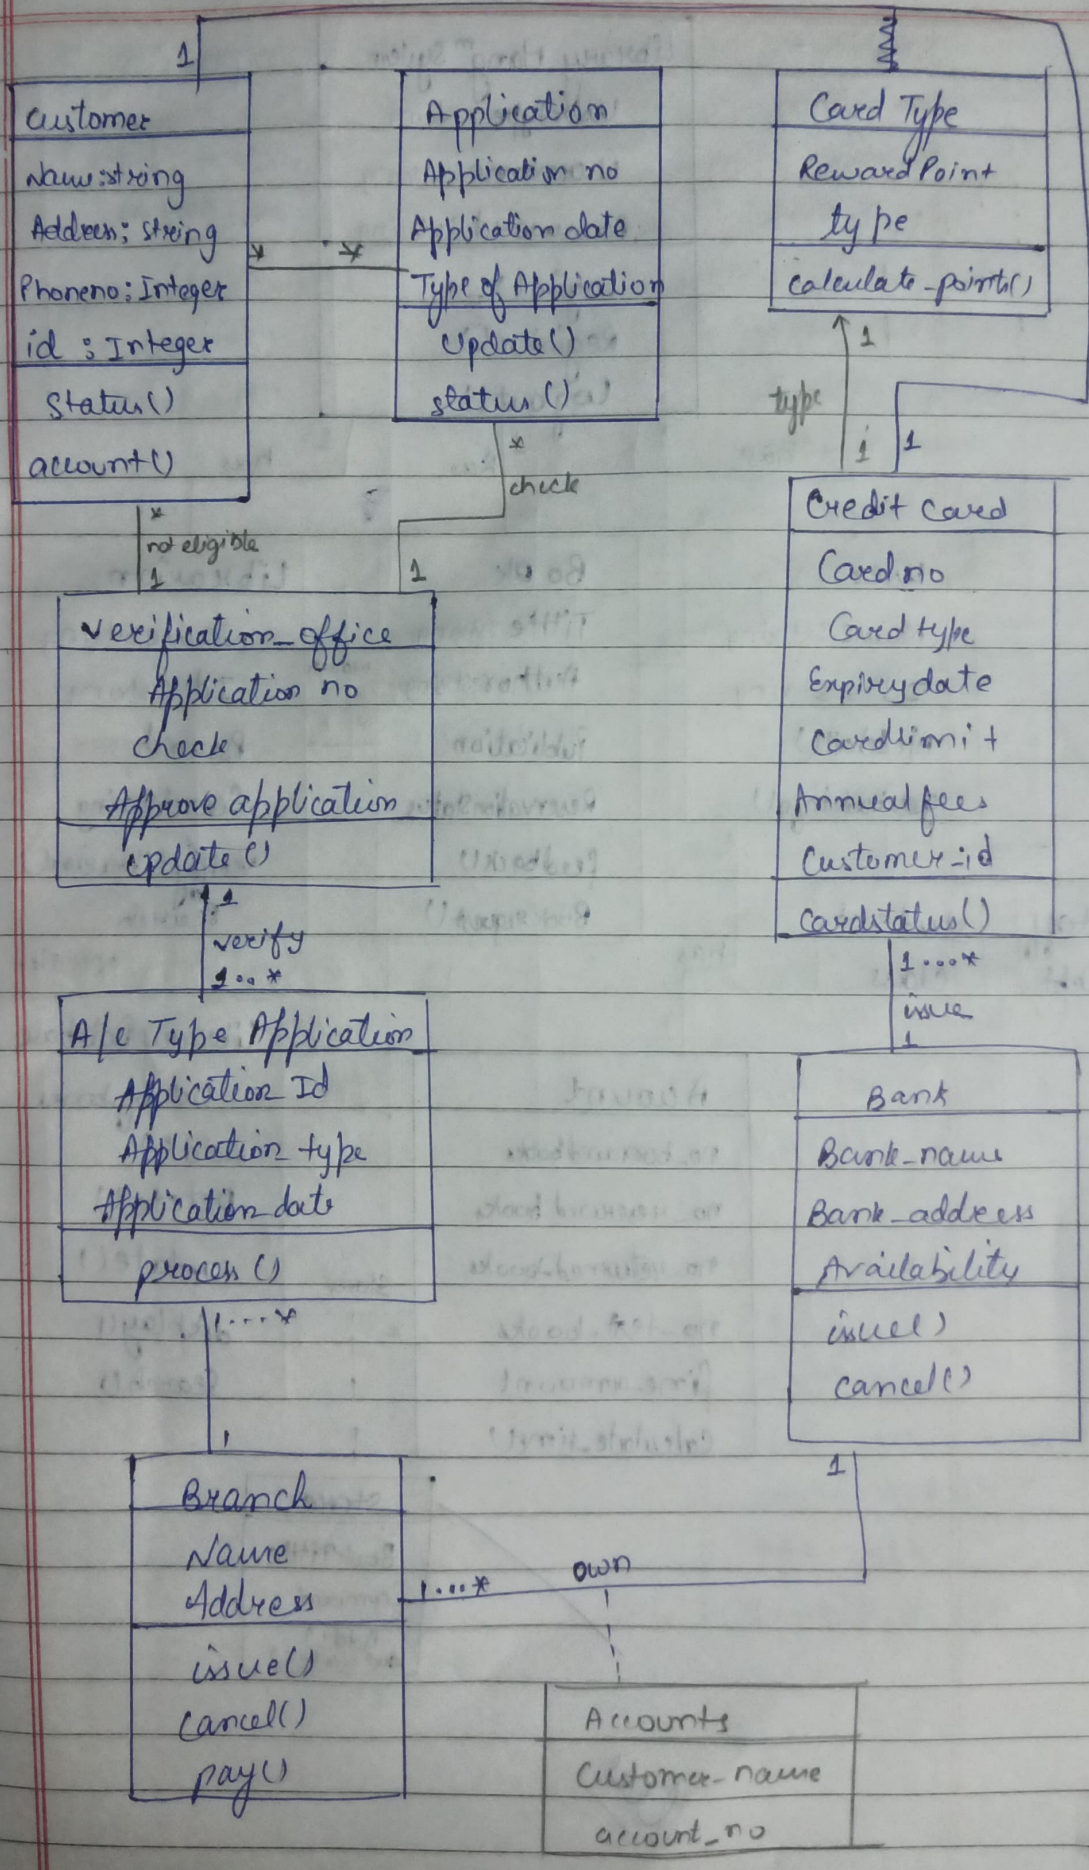 1
Customer
Name:string
Address: string
Phoneno: Integer
id : Integer
status()
account()
* *
Application
Application no
Application date
Type of Application
Update()
status()
Card Type
Reward Point
type
calculate_points()
1
type
1
1
*
check
1
*
not eligible
1
Verification_office
Application no
check
Approve application
update()
1
verify
1..*
Credit card
Card no
Card type
Expiry date
Cardlimit
Annual fees
Customer_id
cardstatus()
1...*
issue
1
A/c Type Application
Application Id
Application type
Application date
process()
1....*
1
Bank
Bank_name
Bank_address
Availability
issue()
cancel()
1
Branch
Name
Address
issue()
cancel()
pay()
1...*
own
Accounts
Customer_name
account_no